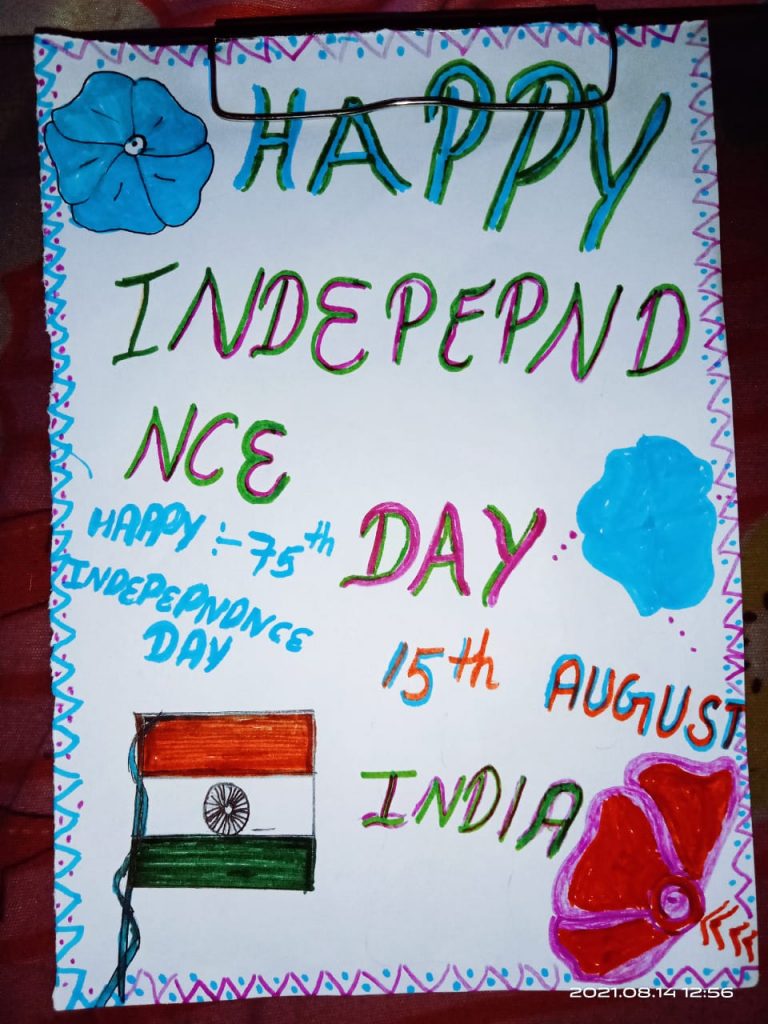 HAPPY
INDEPEPND
NCE
DAY
HAPPY :- 75th
INDEPEPNDNCE
DAY
15th AUGUST
INDIA
2021.08.14 12:56